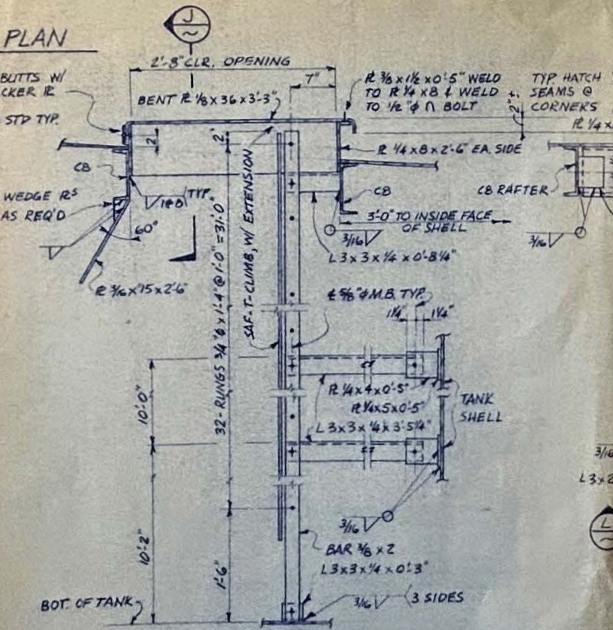 PLAN
J
2'-8" CLR. OPENING
7"
BUTTS W/
CKER PL
STD TYP.
BENT PL 1/8 x 36 x 3'-3"
PL 3/8 x 1 1/2 x 0'-5" WELD
TO PL 1/4 x 8 & WELD
TO 1/2" φ ∩ BOLT
TYP. HATCH
SEAMS @
CORNERS
2"
PL 1/4 x
2
2'
PL 1/4 x 8 x 2'-6" EA. SIDE
C8
C8
C8 RAFTER
WEDGE PLS
AS REQ'D
TYP.
60°
3'-0" TO INSIDE FACE
OF SHELL
3/16
3/16
L 3 x 3 x 1/4 x 0'-8 1/4"
PL 3/16 x 15 x 2'-6"
SAF-T-CLIMB, W/ EXTENSION
32-RUNGS 3/4"φ x 1'-4" @ 1'-0" = 31'-0"
℄ 5/8" φ M.B. TYP.
1 1/4"
1 1/4"
10'-0"
PL 1/4 x 4 x 0'-5"
PL 1/4 x 5 x 0'-5"
L 3 x 3 x 1/4 x 3'-5 1/4"
TANK
SHELL
3/16
L 3 x 2
L
3/16
10'-2"
1'-6"
BAR 3/8 x 2
L 3 x 3 x 1/4 x 0'-3"
3/16
3 SIDES
BOT. OF TANK